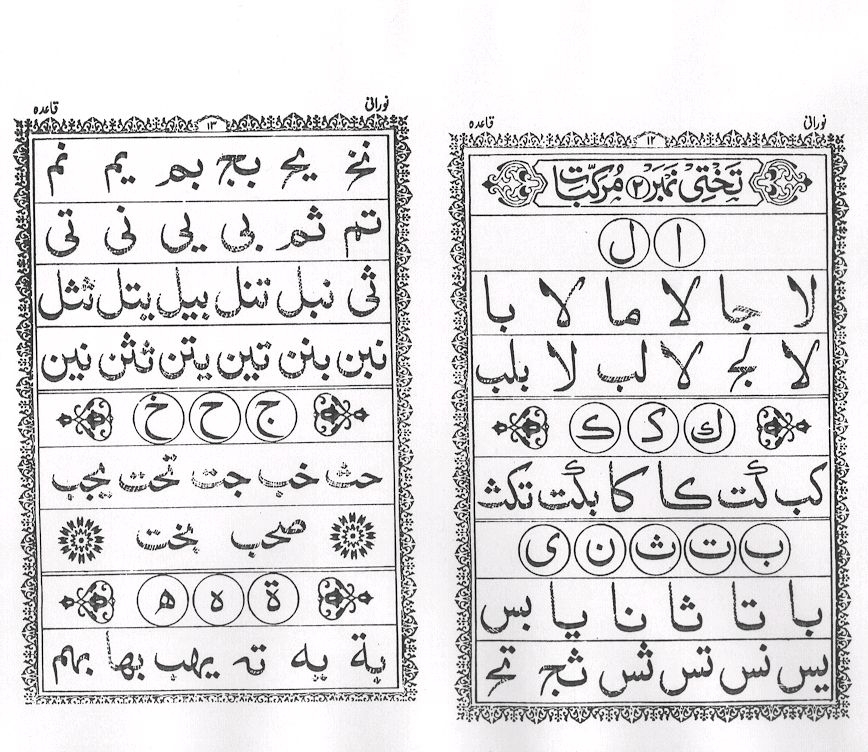 نورانی قاعدہ
۱۲
تختی نمبر ۲ مُرکّبات
ا ل
لا جا لا ما لا با
لا لج لا لب لا بلب
ك ک ڪ
کب کت کا کا بکت تکث
ب ت ث ن ی
با تا ثا نا یا بس
یس نس تس ثس ثج تح
نورانی قاعدہ
۱۳
نخ یح بج بم یم نم
تم ثم بی یی نی تی
ثی نبل تنل بیل یتل نثل
نبن بنن یتن تین ثثن نین
ج ح خ
حث خب جت تحت یجب
صحب بخت
ة ه ھ
یة یه ته یهب بها بهم